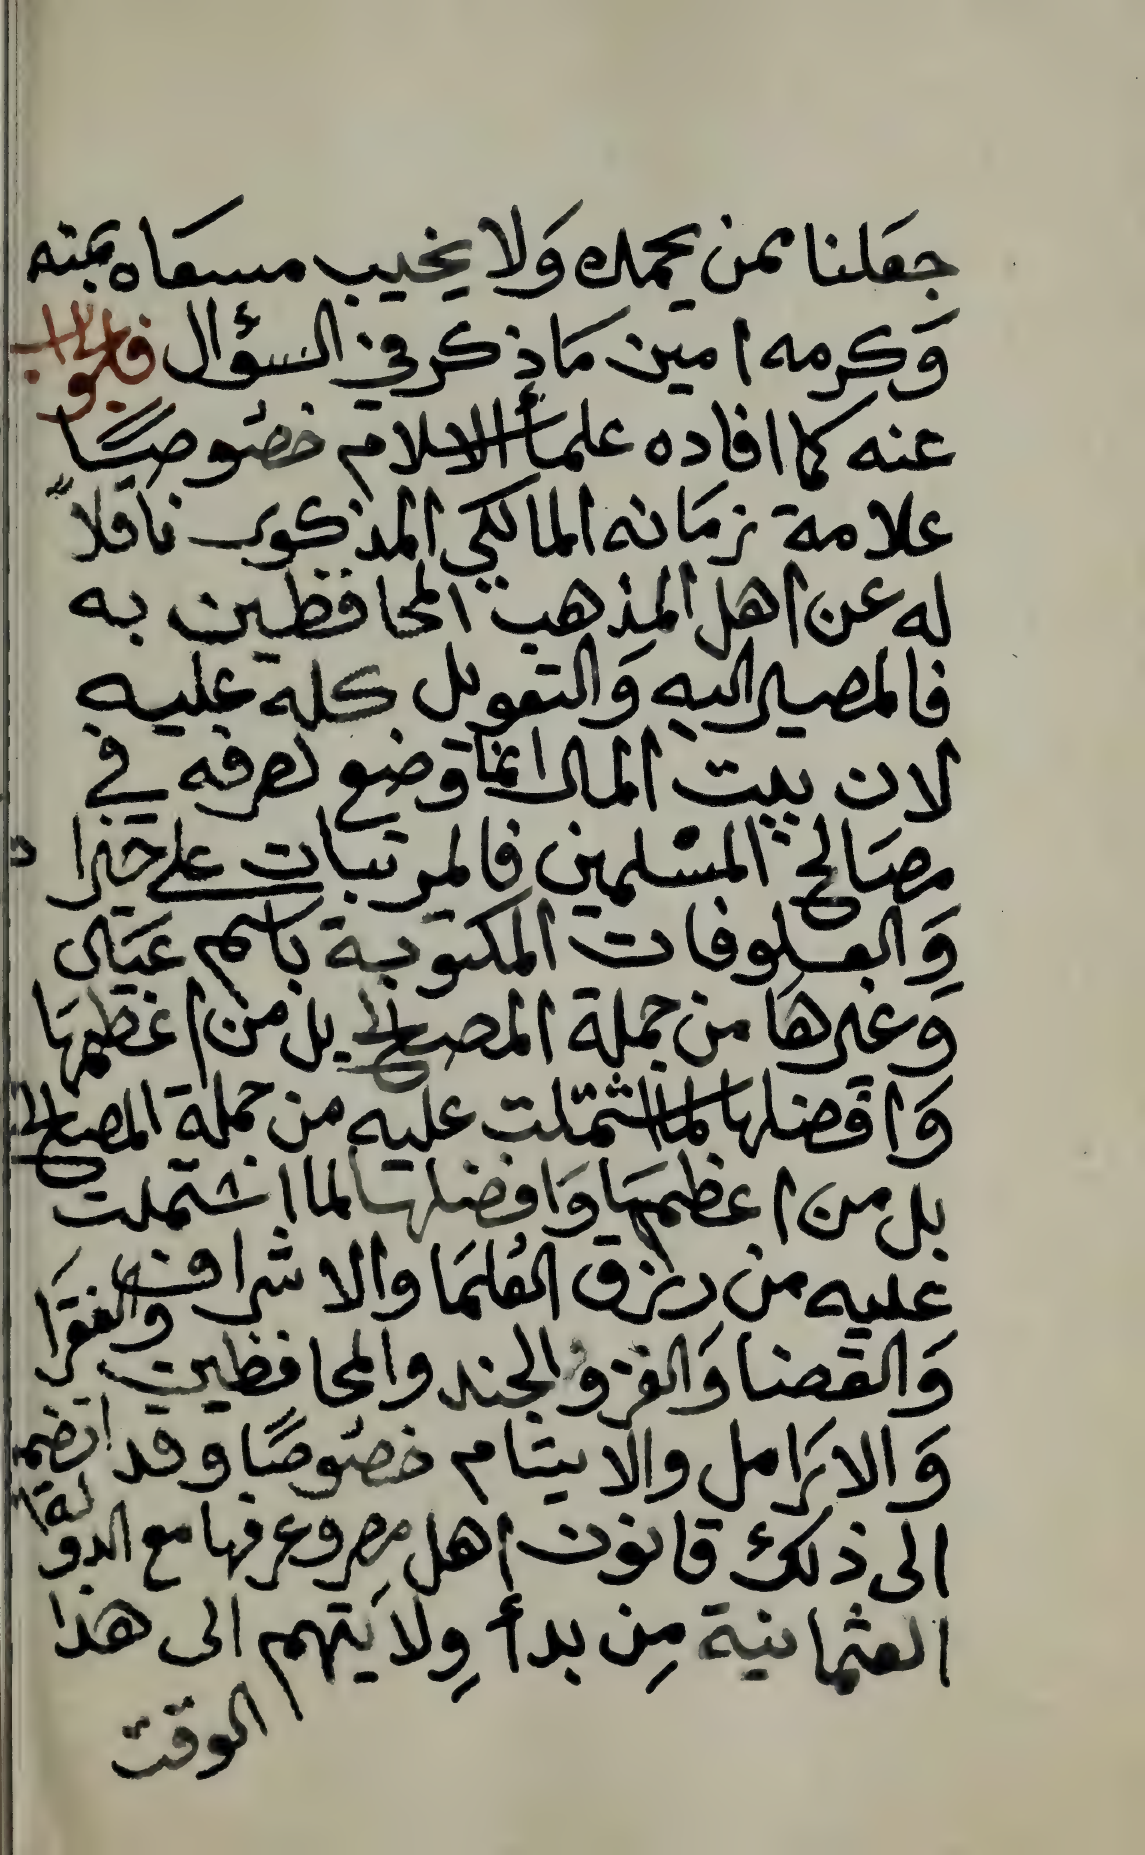 جعلنا ممن يحمده ولا يخيب مسعاه بمنه
وكرمه امين ما ذكر في السؤال فالجواب
عنه كما افاده علمأ الاسلام خصوصيًا
علامة زمانه المالكي المذكور ناقلاً
له عن اهل المذهب المحافظين به
فالمصير اليه والتعويل كله عليه
لان بيت المال انما وضع لصرفه في
مصالح المسلمين فالمرتبات على خيرا
والعلوفات المكتوبة باسم عيال
وغيرها من جملة المصالح بل من اعظمها
وافضلها لما اشتملت عليه من جملة المصالح
بل من اعظمها وافضلها لما اشتملت
عليه من رزق العلما والاشراف والفقرا
والقضا والغز والجند والمحافظين
والارامل والايتام خصوصًا وقد انضم
الى ذلك قانون اهل مصر وعرفها مع الدولة
العثمانية من بدأ ولايتهم الى هذا
الوقت